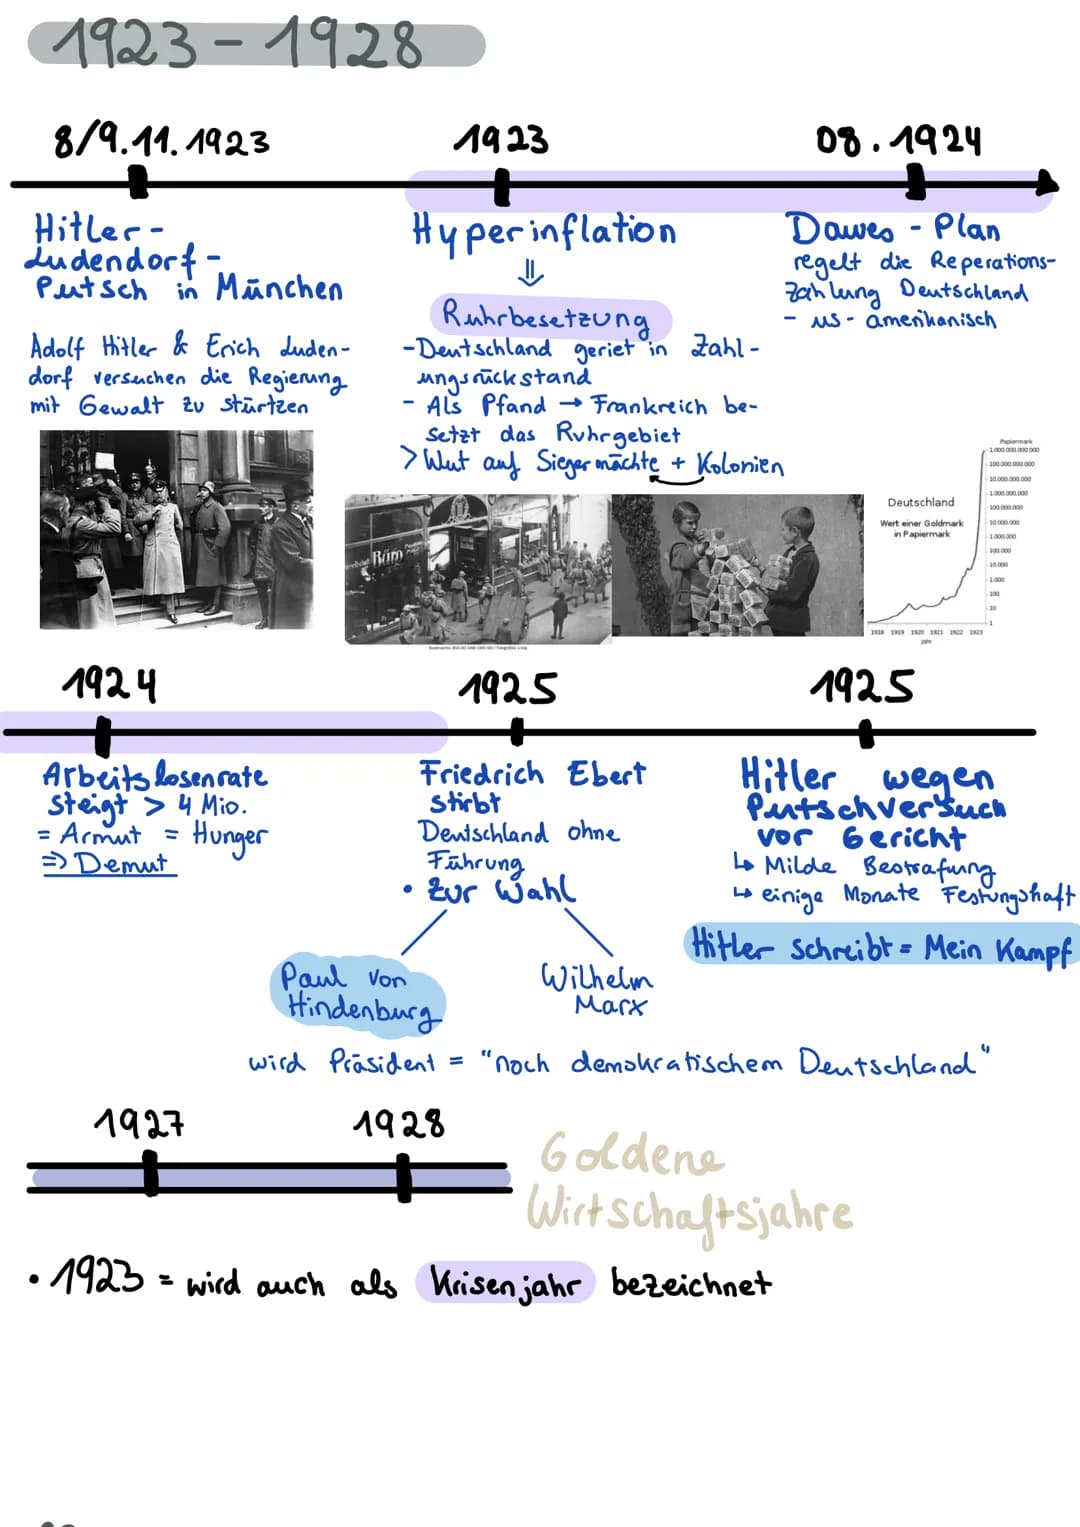 1923-1928
8/9.11.1923
1923
08.1924
Hitler-
Ludendorf-
Putsch in München
Adolf Hitler & Erich Luden-
dorf versuchen die Regierung
mit Gewalt zu stürtzen
Hyperinflation
⇓
Ruhrbesetzung
-Deutschland geriet in Zahl-
ungsrückstand
- Als Pfand → Frankreich be-
setzt das Ruhrgebiet
> Wut auf Siegermächte + Kolonien
Dawes - Plan
regelt die Reperations-
zahlung Deutschland
- us-amerikanisch
Büro
Deutschland
Wert einer Goldmark
in Papiermark
Papiermark
1.000.000.000.000
100.000.000.000
10.000.000.000
1.000.000.000
100.000.000
10.000.000
1.000.000
100.000
10.000
1.000
100
10
1
1918 1919 1920 1921 1922 1923
Jahr
1924
1925
1925
Arbeitslosenrate
steigt > 4 Mio.
= Armut = Hunger
⇒ Demut
Friedrich Ebert
stirbt
Deutschland ohne
Führung
• zur Wahl
Paul von
Hindenburg
Wilhelm
Marx
wird Präsident = "noch demokratischem Deutschland"
Hitler wegen
Putschversuch
vor Gericht
↳ Milde Bestrafung
↳ einige Monate Festungshaft
Hitler schreibt = Mein Kampf
1927
1928
Goldene
Wirtschaftsjahre
• 1923 = wird auch als Krisenjahr bezeichnet